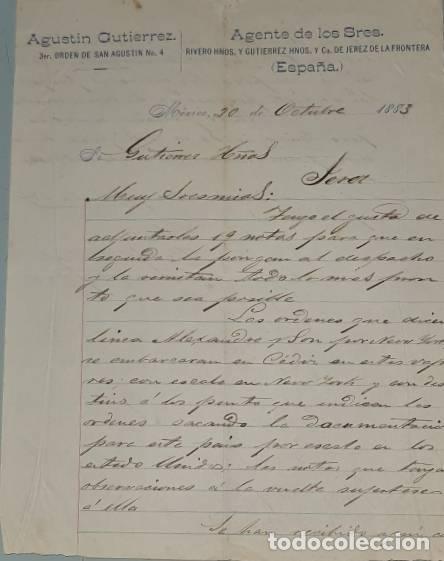 Agustin Gutierrez.
3er. ORDEN DE SAN AGUSTIN No. 4
Agente de los Sres.
RIVERO HNOS. Y GUTIERREZ HNOS. Y Ca. DE JEREZ DE LA FRONTERA
(España.)
México, 20 de Octubre 1883
Gutierrez Hnos
Jerez
Muy Sres mios:
Tengo el gusto de
adjuntarles 19 notas para que en
seguida la pongan al despacho
y la remitan todo lo mas pron
to que sea posible
Las ordenes que dicen
linea Alexandre y Son por New York
se embarcaran en Cádiz en estos vapo
res: con escala en New York y con des
tino á los puntos que indican las
ordenes sacando la documentacion
para este pais por escala en los
estados Unidos; las notas que tengan
observaciones á la vuelta sujetarse
á ella
Se han recibido
todocoleccion.net